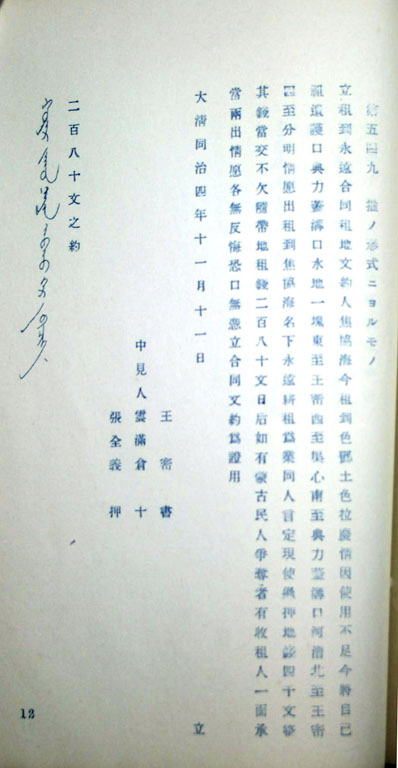 第五四九 ノ形式ニヨルモノ
立租到永遠合同租地文約人焦協海今租到色鄧土色拉廢情因使用不足今將自己
祖遺護口典力蓋溝口水地一塊東至王密西至吳心南至典力蓋溝口河漕北至王密
四至分明情愿出租到焦協海名下永遠耕租爲業同人言定現使押地錢四千文整
其錢當交不欠隨帶地租錢二百八十文日后如有蒙古民人爭奪者有收租人一面承
當兩出情愿各無反悔恐口無憑立合同文約爲證用
大清同治四年十一月十一日 立
王密書
中見人雲滿倉 十
張全義 押
二百八十文之約
12